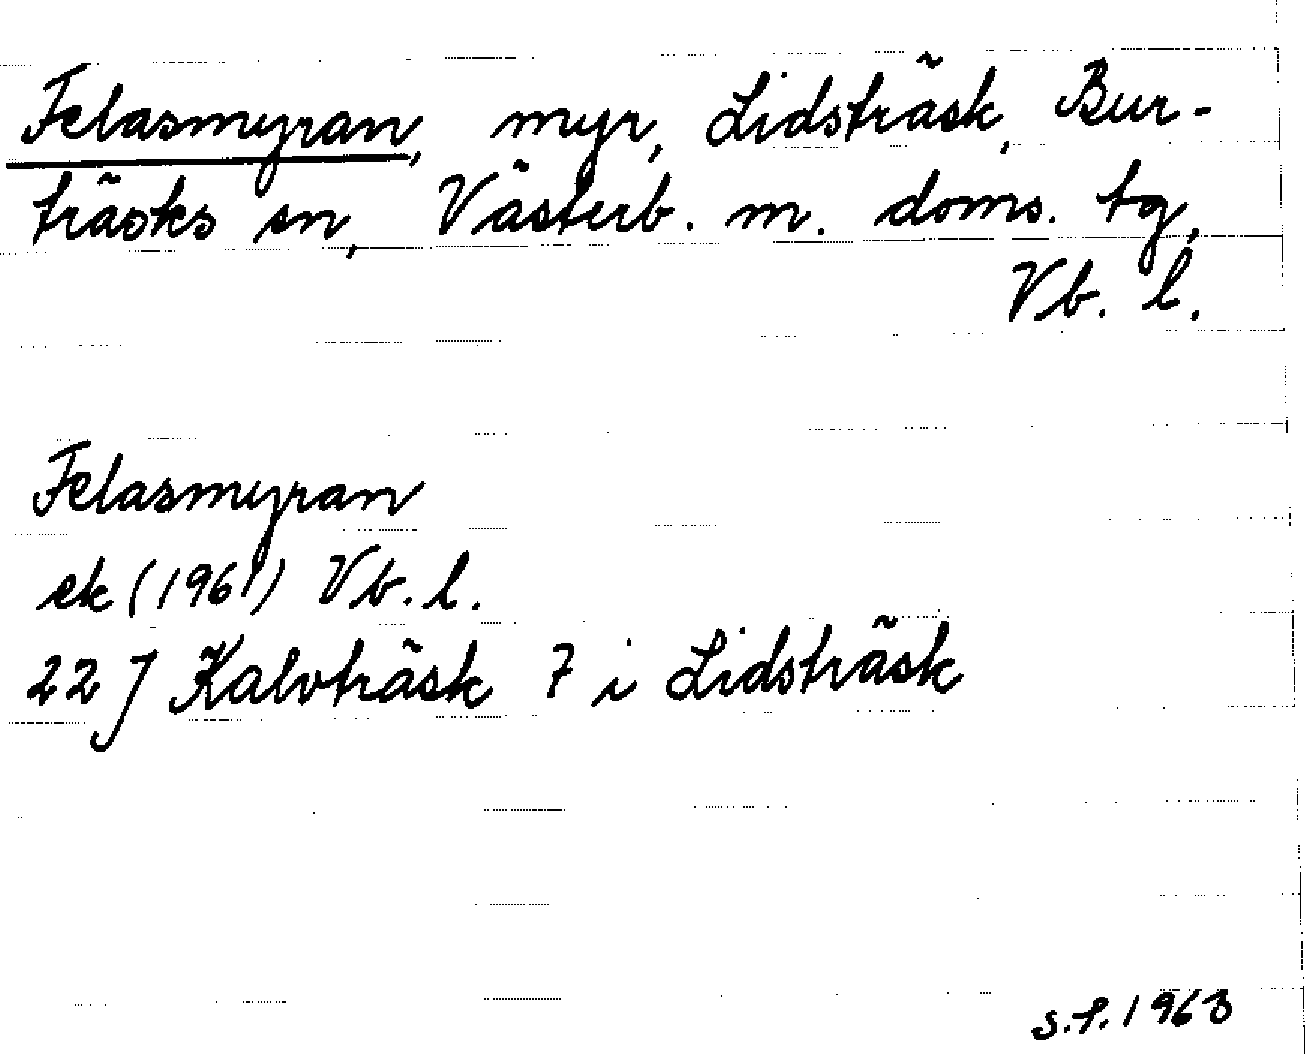 Felasmyran, myr, Lidsträsk, Bur-
träsks sn, Västerb. m. doms. tg,
Vb. l.
Felasmyran
ek (1961) Vb. l.
22 J Kalvträsk 7 i Lidsträsk
S.P. 1963